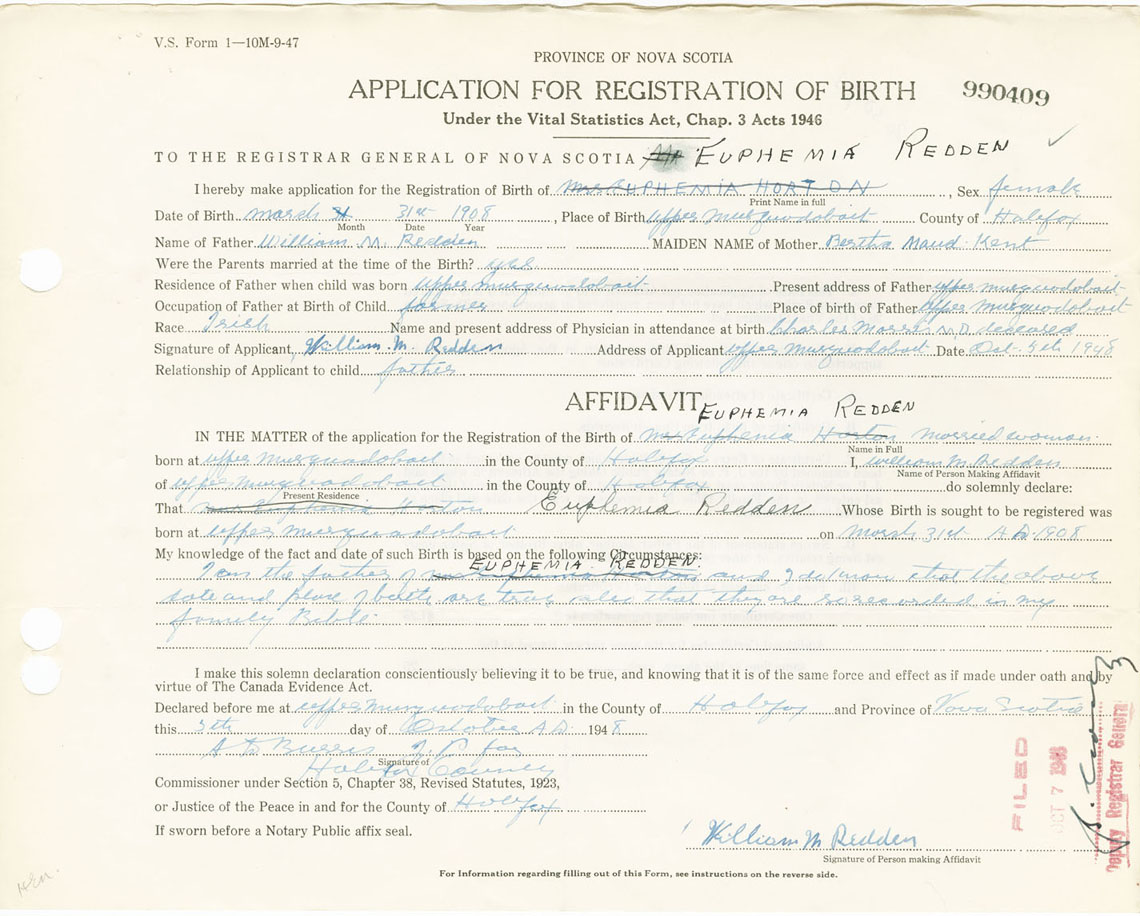 V.S. Form 1—10M-9-47
PROVINCE OF NOVA SCOTIA
APPLICATION FOR REGISTRATION OF BIRTH 990409
Under the Vital Statistics Act, Chap. 3 Acts 1946
TO THE REGISTRAR GENERAL OF NOVA SCOTIA EUPHEMIA REDDEN
I hereby make application for the Registration of Birth of Mrs EUPHEMIA HORTON, Sex female
Print Name in full
Date of Birth march 31st 1908, Place of Birth upper musquodoboit County of Halifax
Month Date Year
Name of Father William M. Redden MAIDEN NAME of Mother Bertha Maud Kent
Were the Parents married at the time of the Birth? yes
Residence of Father when child was born upper musquodoboit Present address of Father upper musquodoboit
Occupation of Father at Birth of Child farmer Place of birth of Father upper musquodoboit
Race Irish Name and present address of Physician in attendance at birth Charles M.D. deceased
Signature of Applicant, William M. Redden Address of Applicant upper musquodoboit Date Oct. 5th 1948
Relationship of Applicant to child father
AFFIDAVIT EUPHEMIA REDDEN
IN THE MATTER of the application for the Registration of the Birth of mrs Euphemia Horton married woman.
Name in Full
born at upper musquodoboit in the County of Halifax I, William M. Redden
Name of Person Making Affidavit
of upper musquodoboit in the County of Halifax do solemnly declare:
Present Residence
That mrs Euphemia Horton Euphemia Redden Whose Birth is sought to be registered was
born at upper musquodoboit on march 31st A D 1908
My knowledge of the fact and date of such Birth is based on the following Circumstances:
EUPHEMIA REDDEN.
I am the father of mrs Euphemia Horton and I declare that the above
date and place of birth are true also that they are so recorded in my
family Bible
I make this solemn declaration conscientiously believing it to be true, and knowing that it is of the same force and effect as if made under oath and by
virtue of The Canada Evidence Act.
Declared before me at upper musquodoboit in the County of Halifax and Province of Nova Scotia
this 5th day of October A D. 1948
Burris J. P. for
Signature of
Halifax County
Commissioner under Section 5, Chapter 38, Revised Statutes, 1923,
or Justice of the Peace in and for the County of Halifax
If sworn before a Notary Public affix seal.
William M Redden
Signature of Person making Affidavit
For Information regarding filling out of this Form, see instructions on the reverse side.
FILED
OCT 7 1948
Deputy Registrar General